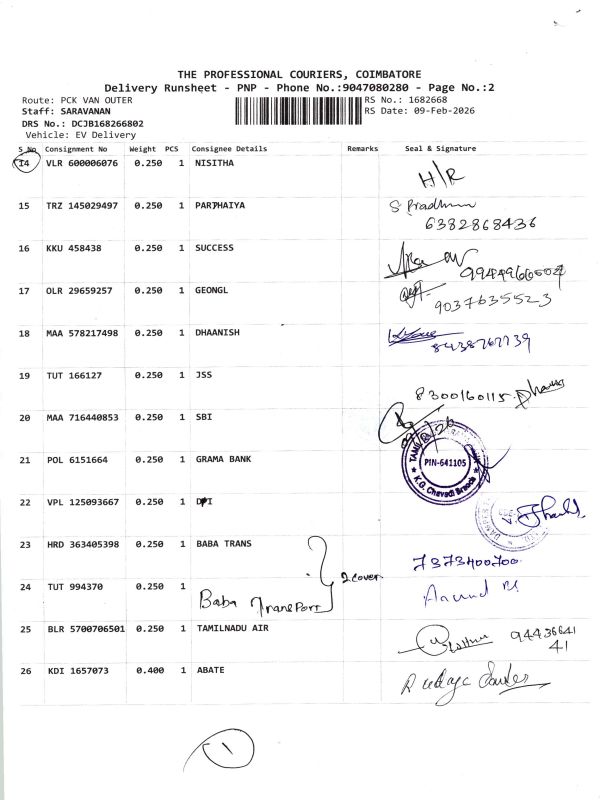 THE PROFESSIONAL COURIERS, COIMBATORE
Delivery Runsheet - PNP - Phone No.:9047080280 - Page No.:2
Route: PCK VAN OUTER
RS No.: 1682668
Staff: SARAVANAN
RS Date: 09-Feb-2026
DRS No.: DCJB168266802
Vehicle: EV Delivery
S No Consignment No Weight PCS Consignee Details Remarks Seal & Signature
14 VLR 600006076 0.250 1 NISITHA H/R
15 TRZ 145029497 0.250 1 PARTHAIYA S Pradhun
6382868436
16 KKU 458438 0.250 1 SUCCESS
17 OLR 29659257 0.250 1 GEONGL
9037635523
18 MAA 578217498 0.250 1 DHAANISH
8438767739
19 TUT 166127 0.250 1 JSS
8300160115
20 MAA 716440853 0.250 1 SBI
21 POL 6151664 0.250 1 GRAMA BANK
PIN-641105
K.G. Chavadi Branch
22 VPL 125093667 0.250 1
23 HRD 363405398 0.250 1 BABA TRANS
7373400700
2 cover
24 TUT 994370 0.250 1
Baba Transport
25 BLR 5700706501 0.250 1 TAMILNADU AIR
94436641
41
26 KDI 1657073 0.400 1 ABATE
1